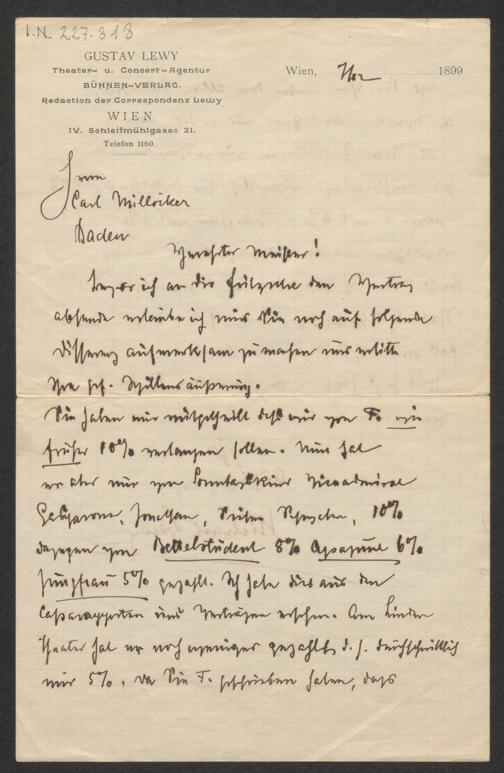 I.N. 227.318
GUSTAV LEWY
Theater- u. Concert-Agentur
BÜHNEN-VERLAG.
Redaction der Correspondenz Lewy
WIEN
IV. Schleifmühlgasse 21.
Telefon 1160.
Wien, 1899
Herrn
Carl Millöcker
Baden
Verehrter Meister!
bevor ich an die den Vertrag
absende erlaube ich mir Sie noch auf folgende
Differenz aufmerksam zu machen und erbitte
Ihre gef. Willensäußerung.
Sie haben mir mitgetheilt daß wir von F. wie
früher 10% verlangen sollen. Nun hat
er aber nur von Sonntagskind Viceadmiral
Gasparone, Jonathan, Sieben Schwaben, 10%
dagegen von Bettelstudent 8% Apajune 6%
Jungfrau 5% gezahlt. Ich habe dies aus den
Cassarapporten und Verträgen ersehen. Am Linden
Theater hat er noch weniger gezahlt, d.h. durchschnittlich
nur 5%. Da Sie F. geschrieben haben, daß